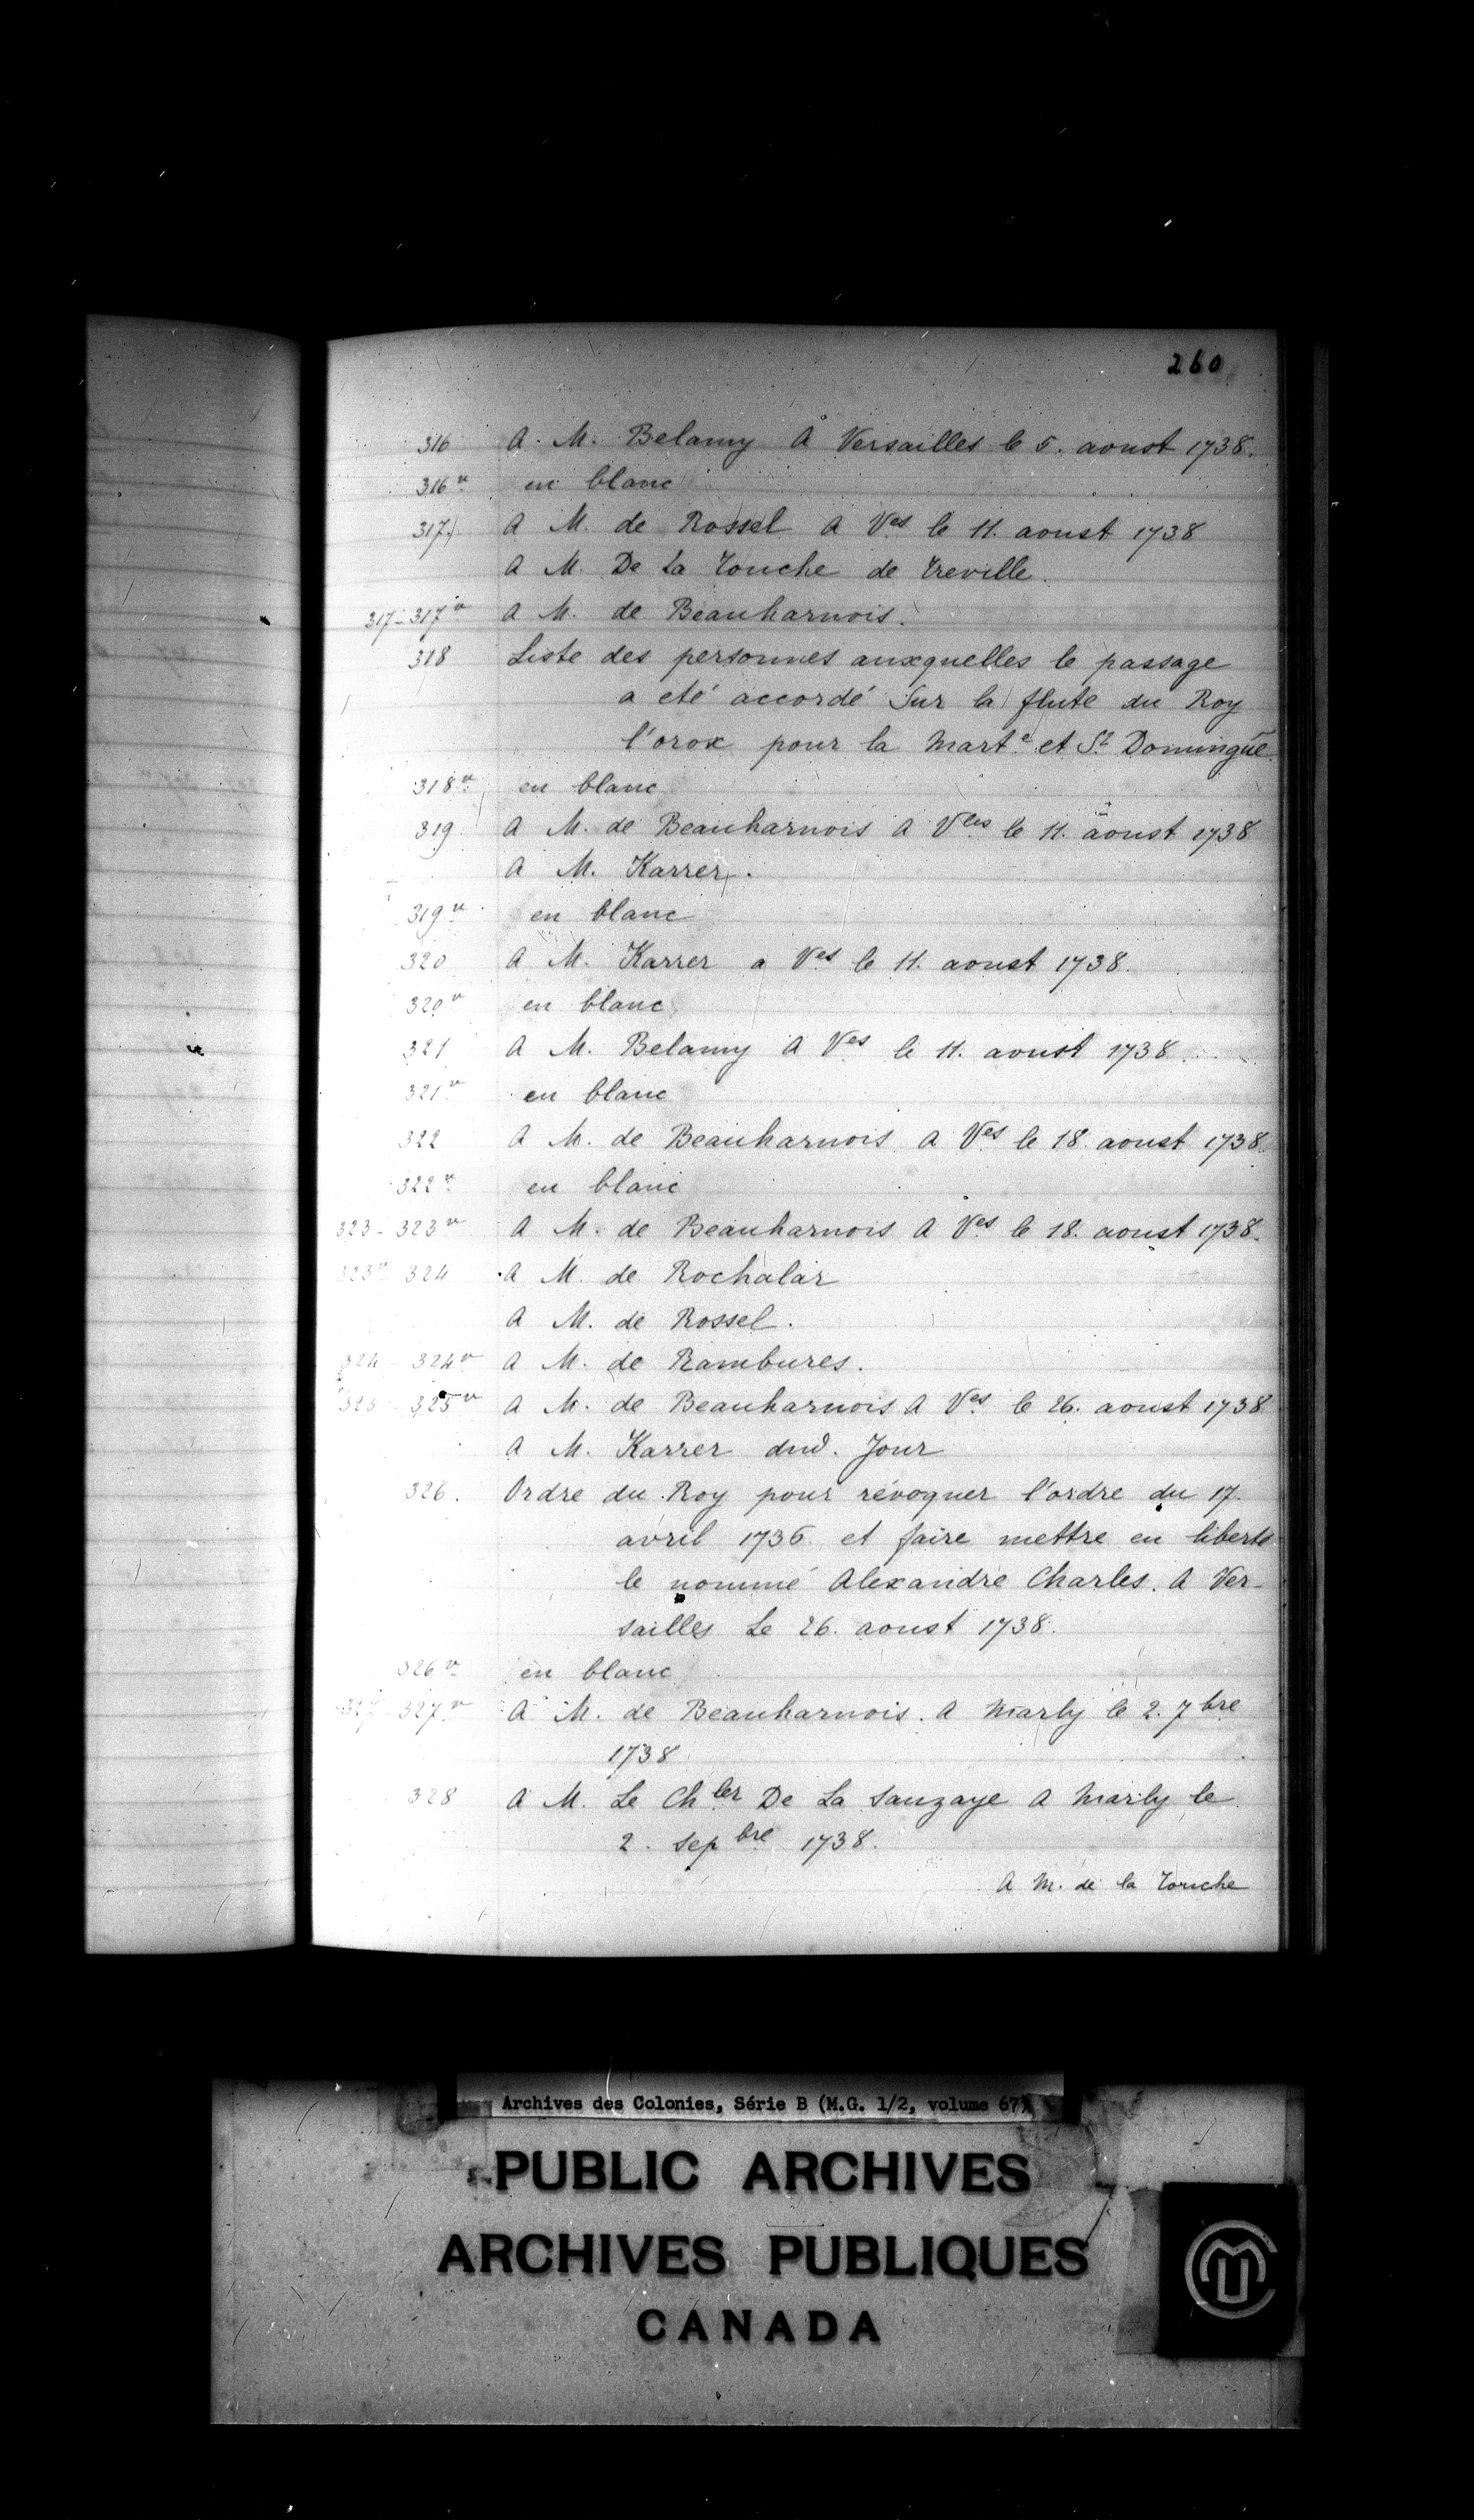 260
316 A. M. Belamy A Versailles le 5. aoust 1738.
316v en blanc
317 A M. de Rossel A Ves le 11. aoust 1738
A M. De La Touche de Treville.
317-317v A M. de Beauharnois.
318 Liste des personnes auxquelles le passage
a eté accordé Sur la flute du Roy
l'orox pour la Marte et St Domingue
318v en blanc
319 A M. de Beauharnois A Vles le 11. aoust 1738
A M. Karrer.
319v en blanc
320 A M. Karrer a Ves le 11. aoust 1738.
320v en blanc
321 A M. Belamy A Ves le 11. aoust 1738
321v en blanc
322 A M. de Beauharnois A Ves le 18 aoust 1738.
322v en blanc
323-323v A M. de Beauharnois A Ves le 18. aoust 1738.
323v 324 A M. de Rochalar
A M. de Rossel.
324-324v A M. de Rambures.
325-325v A M. de Beauharnois A Ves le 26. aoust 1738
A M. Karrer dud. Jour
326. Ordre du Roy pour révoquer l'ordre du 17.
avril 1736 et faire mettre en liberté
le nommé Alexandre Charles. A Ver-
sailles Le 26. aoust 1738.
326v en blanc
327-327v A M. de Beauharnois. A Marly le 2. 7bre
1738
328 A M. Le Chler De La Sauzaye A Marly le
2. Sepbre 1738.
A M. de la Touche
Archives des Colonies, Série B (M.G. 1/2, volume 67)
PUBLIC ARCHIVES
ARCHIVES PUBLIQUES
CANADA